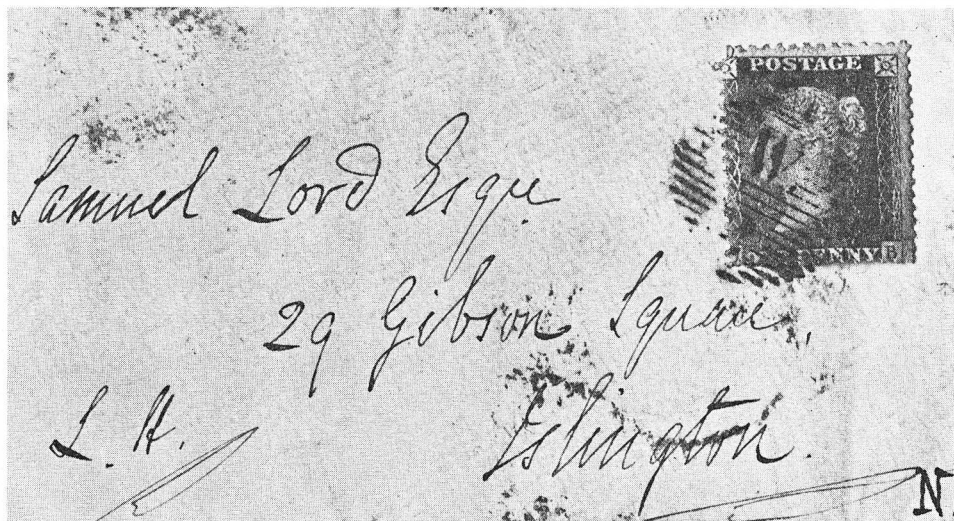 POSTAGE
PENNY B
Samuel Lord Esqre
29 Gibson Square,
L. H. Islington.
N